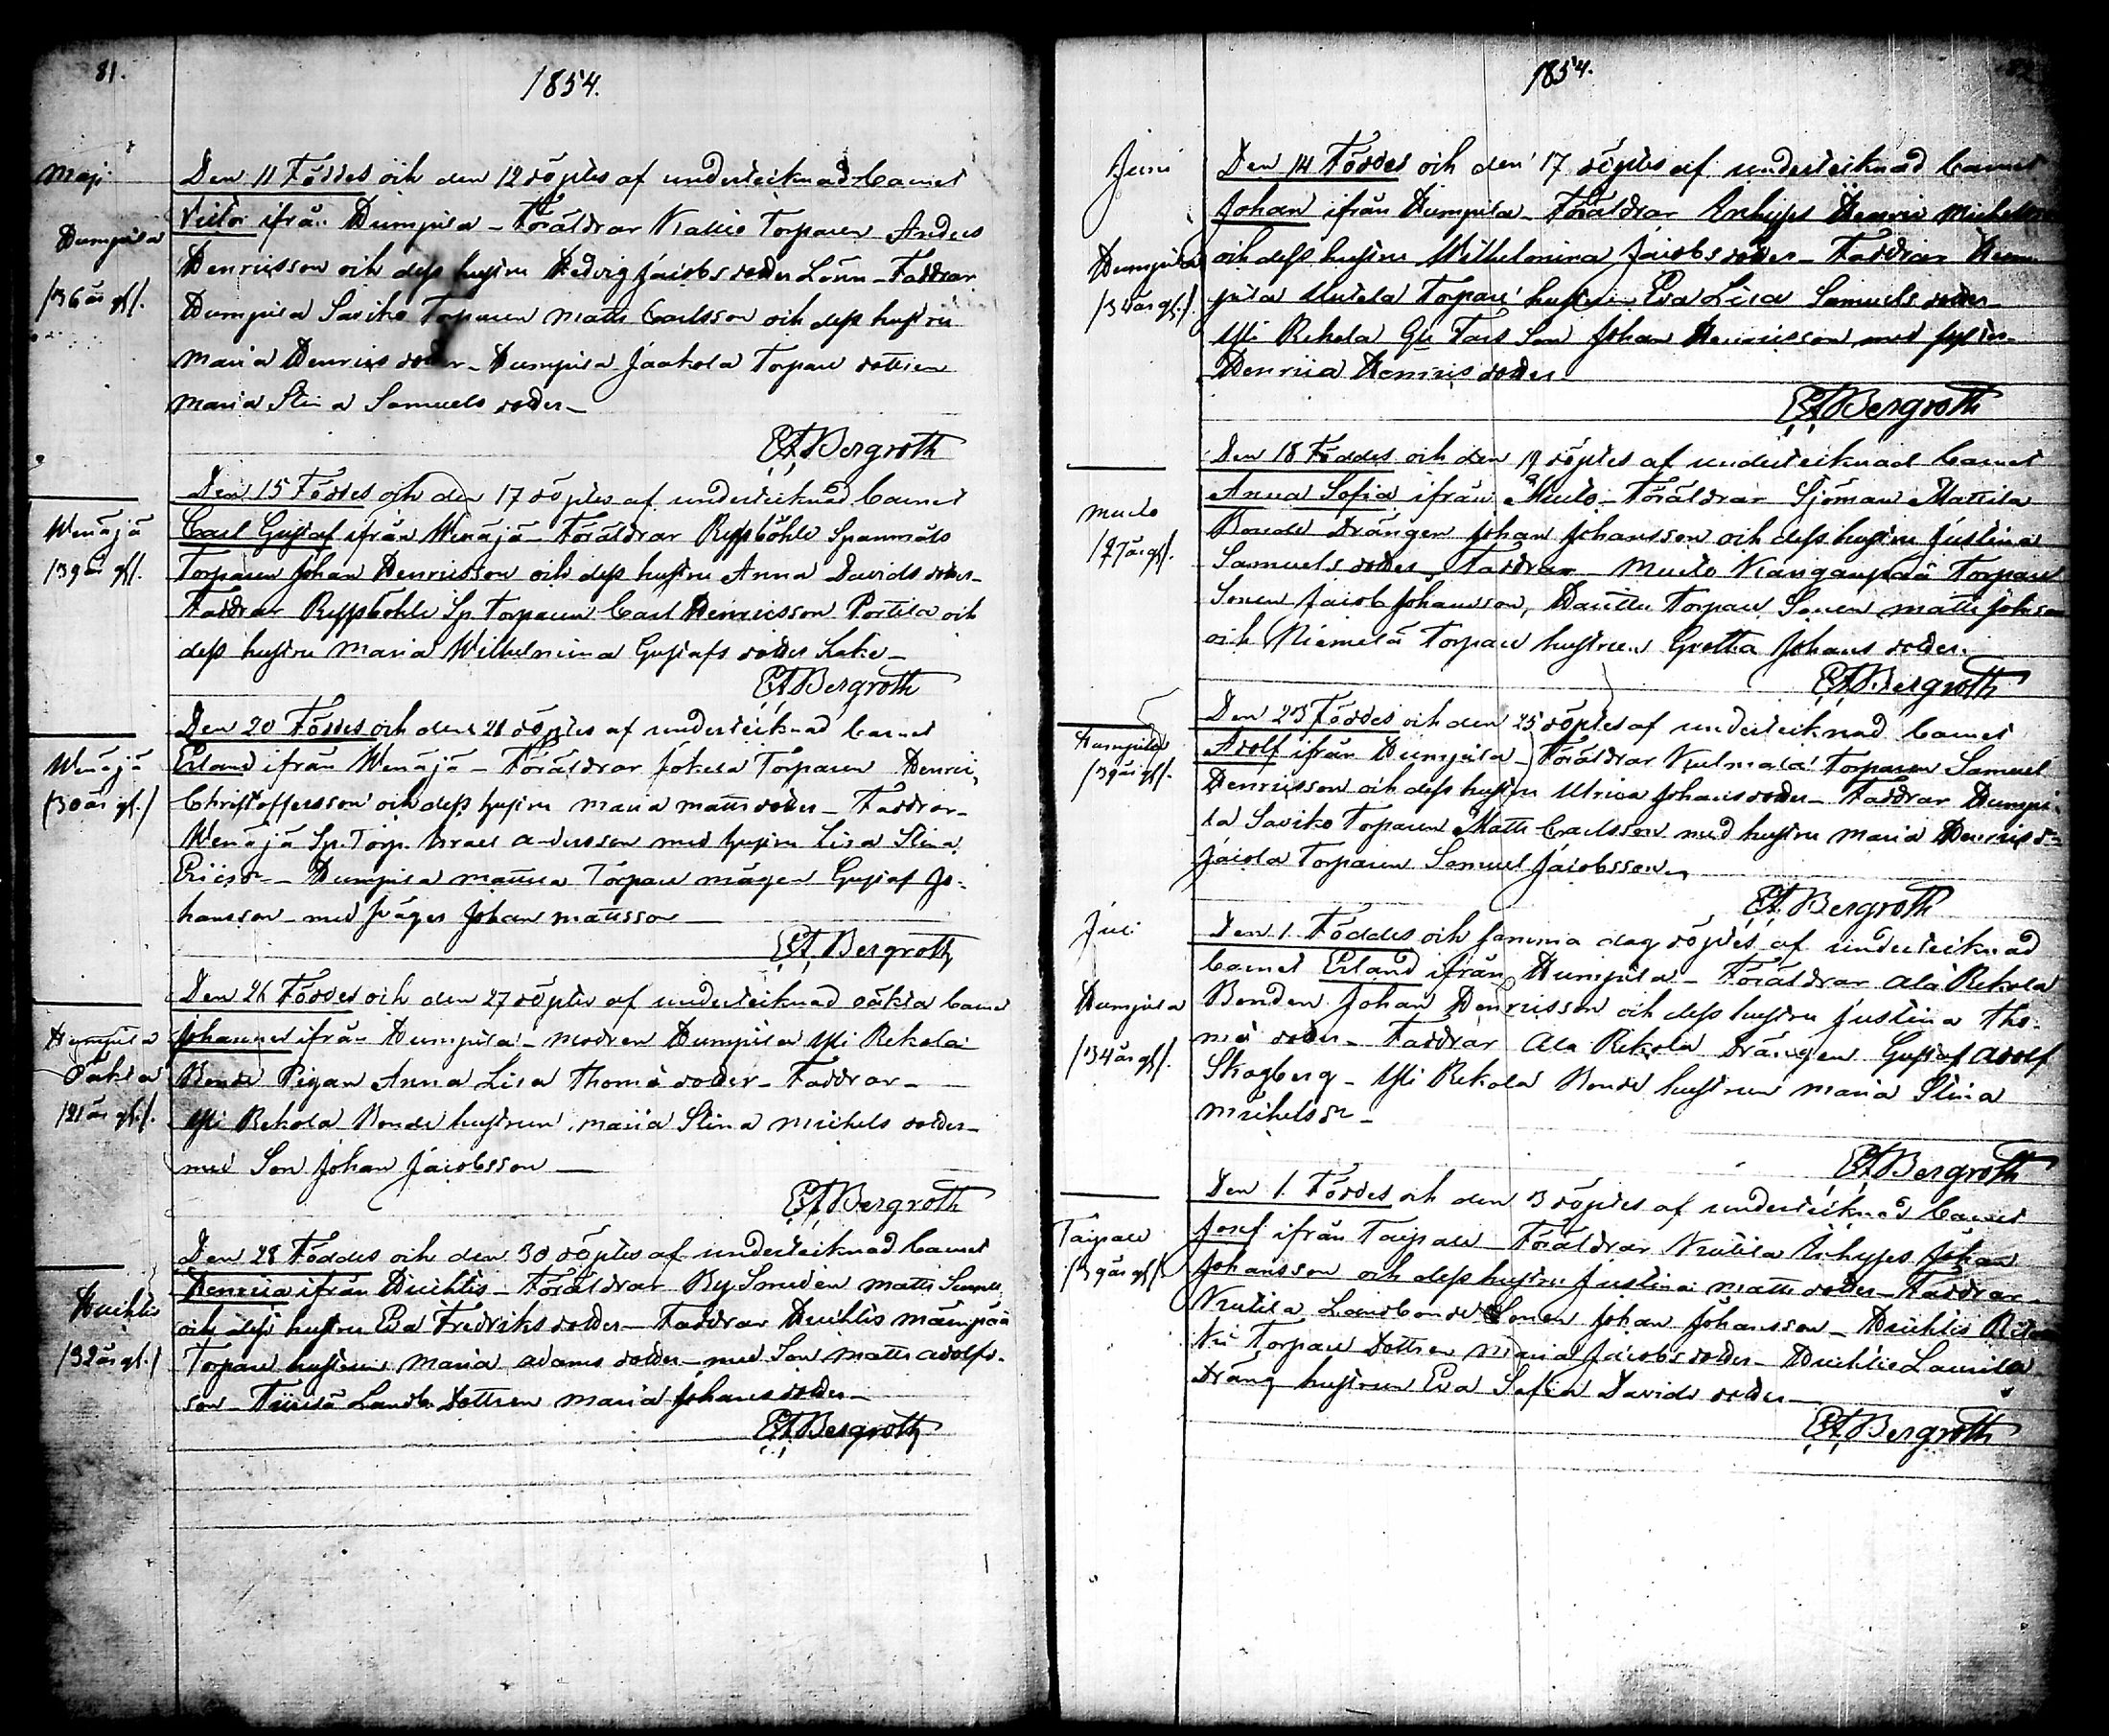 81.
1854.
Maji
Den 11 Föddes och den 12 döptes af undertecknad barnet
Victor ifrån Humpila - Föräldrar Kallio Torparen Anders
Humpila
Henricsson och dess hustru Hedvig Jacobsdotter Lönn - Faddrar
/36 år gl/.
Humpila Saviko Torparen Matts Carlsson och dess hustru
Maria Henricsdotter - Humpila Jaakola Torpare dottren
Maria Stina Samuelsdotter -
EA Bergroth
Den 15 Föddes och den 17 döptes af undertecknad barnet
Wenäjä
Carl Gustaf ifrån Wenäjä - Föräldrar Ryssböhle Spanmåls
/39 år gl/.
Torparen Johan Henricsson och dess hustru Anna Davidsdotter -
Faddrar Ryssböhle Sp. Torparen Carl Henricsson Portila och
dess hustru Maria Wilhelmina Gustafsdotter Lake -
EA Bergroth
Den 20 Föddes och den 21 döptes af undertecknad barnet
Wenäjä
Erland ifrån Wenäjä - Föräldrar Jokela Torparen Henric
/30 år gl./
Christoffersson och dess hustru Maria Mattsdotter - Faddrar -
Wenäjä Sp. Torp. Israel Andersson med hustru Lisa Stina
Ericsdr - Humpila Mattila Torpare mågen Gustaf Jo-
hansson med svåger Johan Mattsson -
EA Bergroth
Den 26 Föddes och den 27 döptes af undertecknad oäkta barnet
Humpila
Johannes ifrån Humpila - Modren Humpila Yli Rekola
Oäkta
Bonde Pigan Anna Lisa Thomædotter - Faddrar -
/21 år gl/.
Yli Rekola Bonde hustrun Maria Stina Michelsdotter -
med Son Johan Jacobsson -
EA Bergroth
Den 28 Föddes och den 30 döptes af undertecknad barnet
Henrica ifrån Huhtis - Föräldrar By Smeden Matts
Huhtis
och dess hustru Eva Fredriksdotter - Faddrar Huhtis Mäenpää
/32 år gl./
Torpare hustrun Maria Adamsdotter - med Son Matts Adolfs-
son - Landb. Dottren Maria Johansdotter -
EA Bergroth
1854.
Juni
Den 14 Föddes och den 17 döptes af undertecknad barnet
Johan ifrån Humpila - Föräldrar Inhyses Henric Michelsson
Humpila
och dess hustru Wilhelmina Jacobsdotter - Faddrar Hum-
/34 år gl./.
pila Torpare hustrun Eva Lisa Samuelsdotter -
Yli Rekola Johan Henricsson med syster
Henrica Henricsdotter -
EA Bergroth
Den 18 Föddes och den 19 döptes af undertecknad barnet
Anna Sofia ifrån Murto - Föräldrar Sjöman Mattila
Murto
Bonde Drängen Johan Johansson och dess hustru Justina
/27 år gl/.
Samuelsdotter - Faddrar - Murto Kangaspää Torpare
Sonen Jacob Johansson, Torpare Sonen Matts Johnsson
och Niemelä Torpare hustrun Gretha Johansdotter.
EA Bergroth
Den 23 Föddes och den 25 döptes af undertecknad barnet
Humpila
Adolf ifrån Humpila - Föräldrar Kulmala Torparen Samuel
/39 år gl/.
Henricsson och dess hustru Ulrica Johansdotter - Faddrar Humpi-
la Saviko Torparen Matts Carlsson med hustru Maria Henricsdr
Torparen Samuel Jacobsson -
EA Bergroth
Juli
Den 1. Föddes och samma dag döptes af undertecknad
barnet Erland ifrån Humpila - Föräldrar Ala Rekola
Humpila
Bonden Johan Henricsson och dess hustru Justina Tho-
/34 år gl/.
mædotter - Faddrar Ala Rekola Drängen Gustaf Adolf
Skogberg - Yli Rekola Bonde hustrun Maria Stina
Michelsdr -
EA Bergroth
Den 1. Föddes och den 3 döptes af undertecknad barnet
Taipale
Josef ifrån Taipale - Föräldrar Inhyses Johan
/39 år gl/.
Johansson och dess hustru Justina Mattsdotter - Faddrar -
Landbonde Sonen Johan Johansson - Huhtis
Torpare Dottren Maria Jacobsdotter - Huhtis Laurila
Dräng hustrun Eva Sofia Davidsdotter -
EA Bergroth